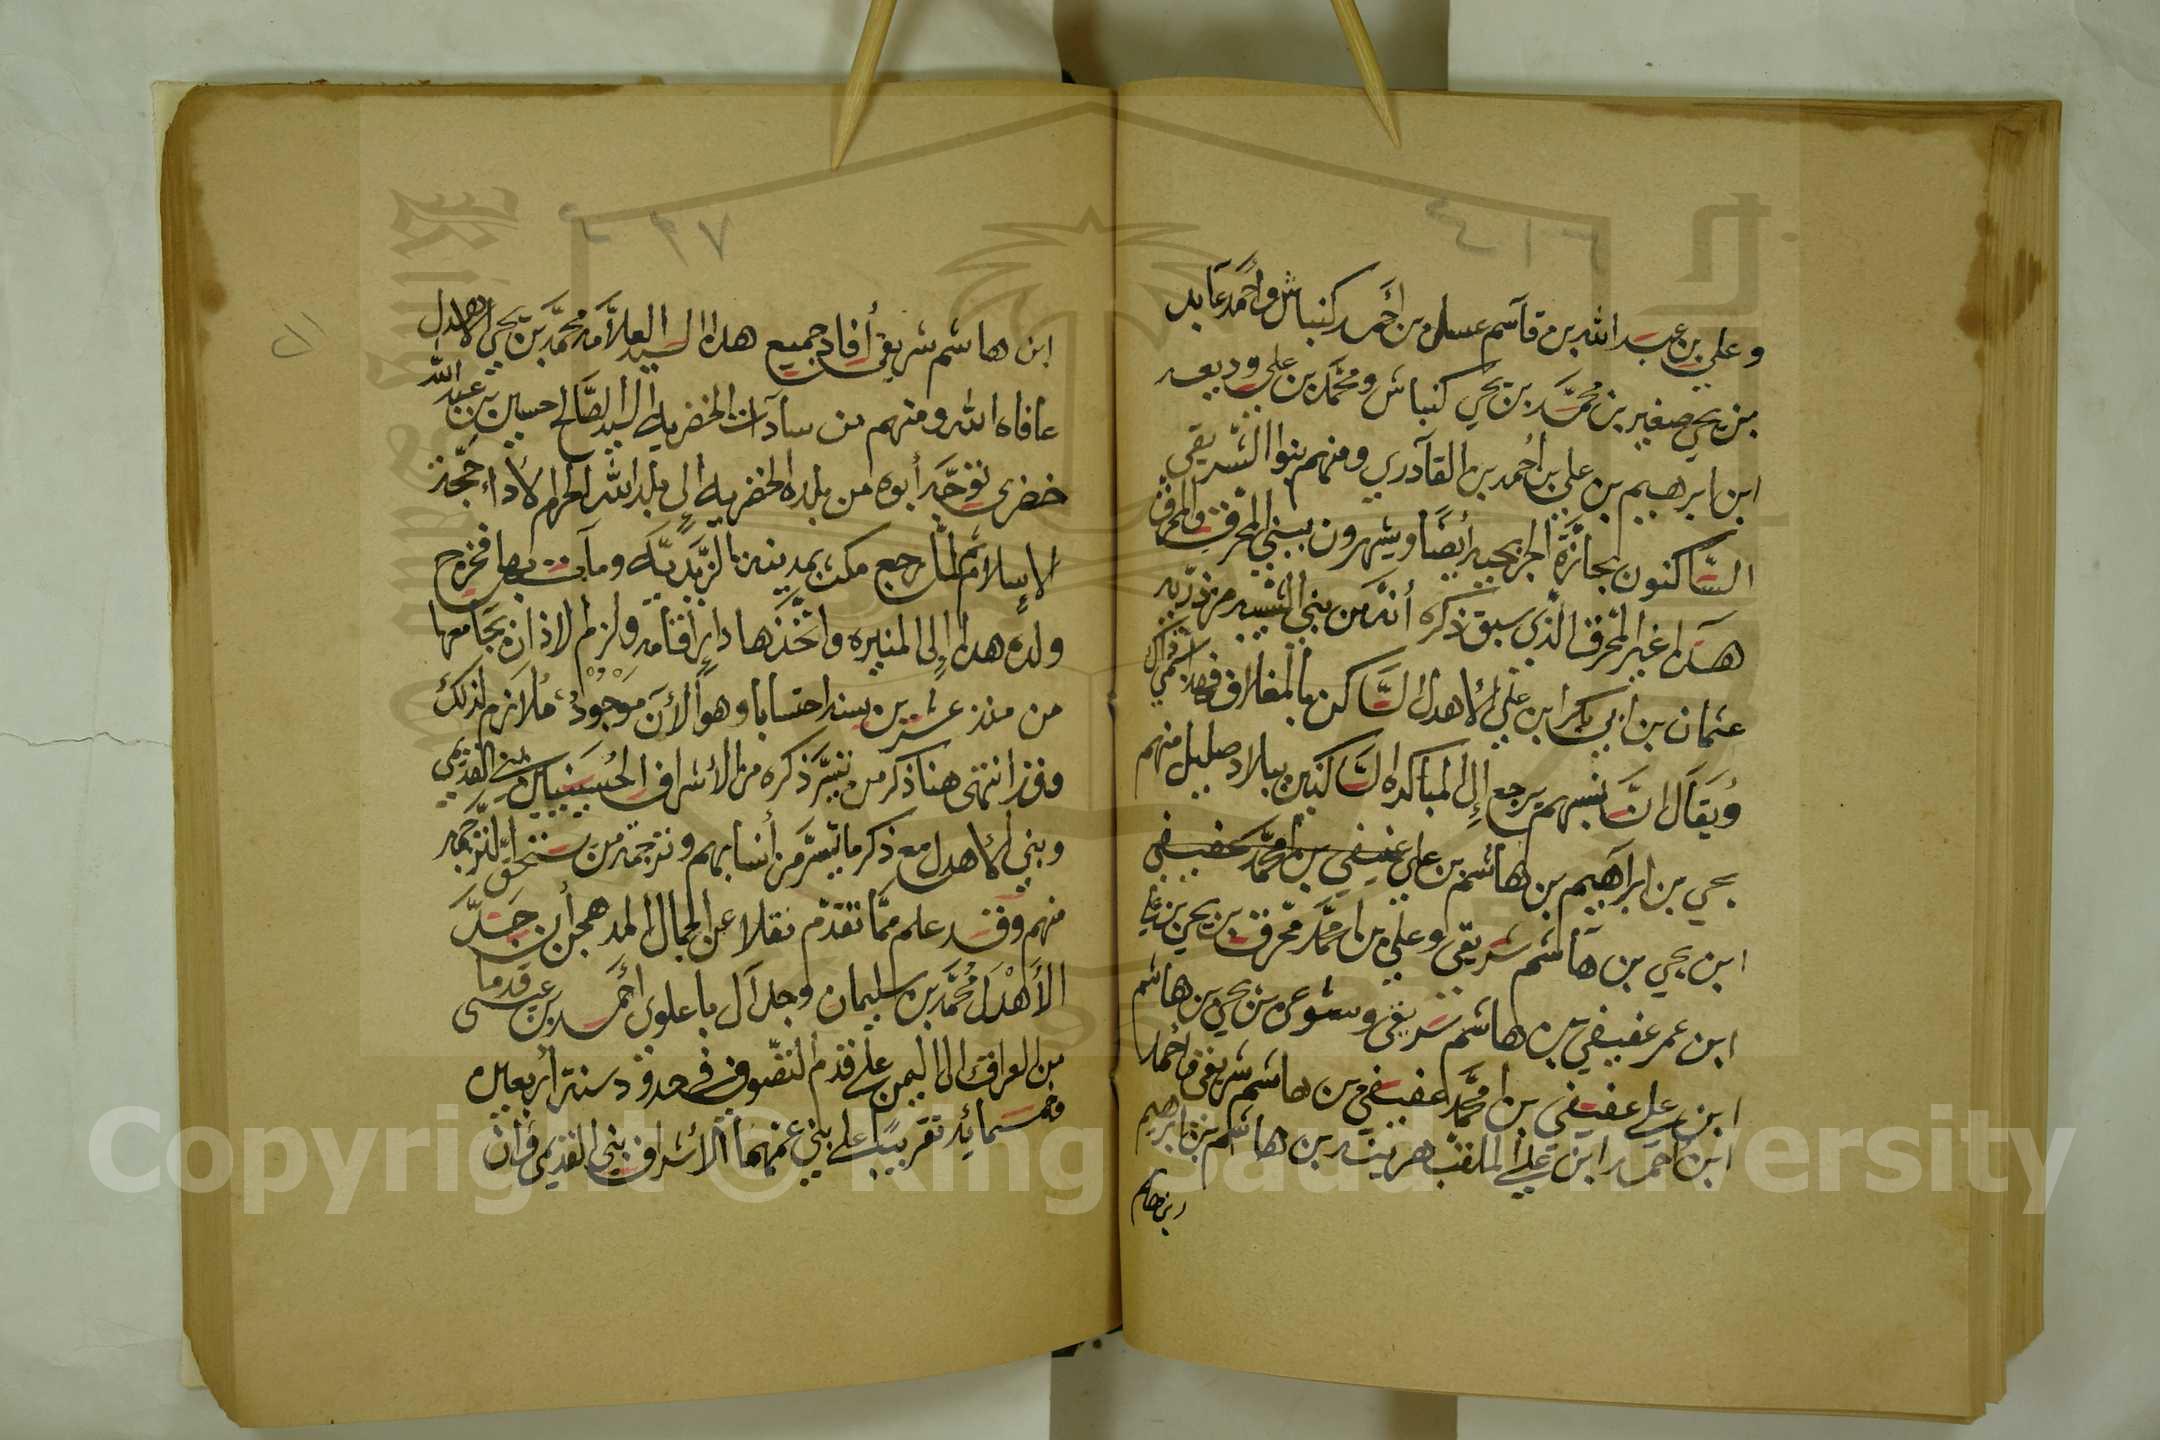 وعلي بن عبد الله بن قاسم عسلي بن أحمد كنباش وأحمد عابد
بن يحي صغير بن محمد بن يحي كنباش ومحمد بن علي وديعه
ابن ابرهيم بن علي بن احمد بن القادري ومنهم بنوا الشريقي
السّاكنون بجازة الجريجيه أيضًا ويشهرون ببني المحرق والمحرق
هذا غير المحرق الذي سبق ذكره أنه من بني الشيبه من ذريه
عثمان بن أبي بكر ابن علي الأهدل السّاكن بالمغلاف فهذا
ويقال انّ نسبهم يرجع إلى المباكده السّاكنين ببلاد صليل منهم
يحي بن ابراهيم بن هاشم بن علي عفيفي بن امحمد عفيفي
ابن يحي بن هاشم شريقي وعلي بن امحمد محرق بن يحي بن علي
ابن عمر عفيفي بن هاشم شريقي وسوعي بن يحي بن هاشم
ابن علي عفيفي بن امحمد عفيفي بن هاشم شريقي واحمد
ابن احمد ابن علي الملقب بن هاشم بن ابرهيم
ابن هاشم
٢١٤
ابن هاشم شريقي أفاد جميع هذا السيد العلامه محمد بن يحي الاهدل
عافاه الله ومنهم من سادات الخضريه السيد الصّالح حسين بن عبد الله
خضري توجّه أبوه من بلده الخضريه إلى بلد الله الحرام لأداء حجّة
الإسلام ثم لمّا رجع مكث بمدينة الزّيديّه ومات بها فخرج
ولده هذا إلى المنيره واتّخذها دار إقامه ولزم الاذان بجامعها
من منذ عشرين سنه احتسابا وهو الآن موجودٌ ملازم لذلك
وقد انتهى هنا ذكر من تيسّر ذكره من الأشراف الحسينيين بني القديمي
وبني الأهدل مع ذكر ما تيسّر من أنسابهم وترجمة من يستحقّ الترجمه
منهم وقد علم ممّا تقدّم نقلا عن الجمال المدهجن أن جدّ
الأهدل محمّد بن سليمان وجد آل باعلوي أحمد بن عيسى قدما
من العراق الى اليمن على قدم التصوف في حدود سنة أربعين
وخمسمائه تقريبًا على بني عمهما الأشراف بني القديمي وأن
٧١
Copyright © King Saud University